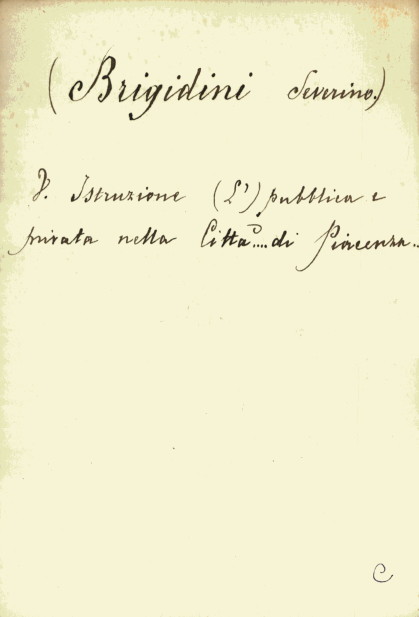 (Brigidini Severino.)
V. Istruzione (L') pubblica e
privata nella Città .... di Piacenza..
C